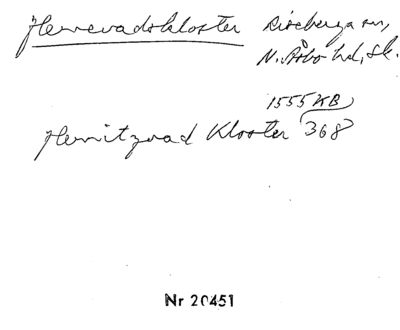 Herrevadskloster Riseberga sn,
N. Åsbo hd, Sk.
1555 KB
Herritzvad Kloster 368
Nr 20451